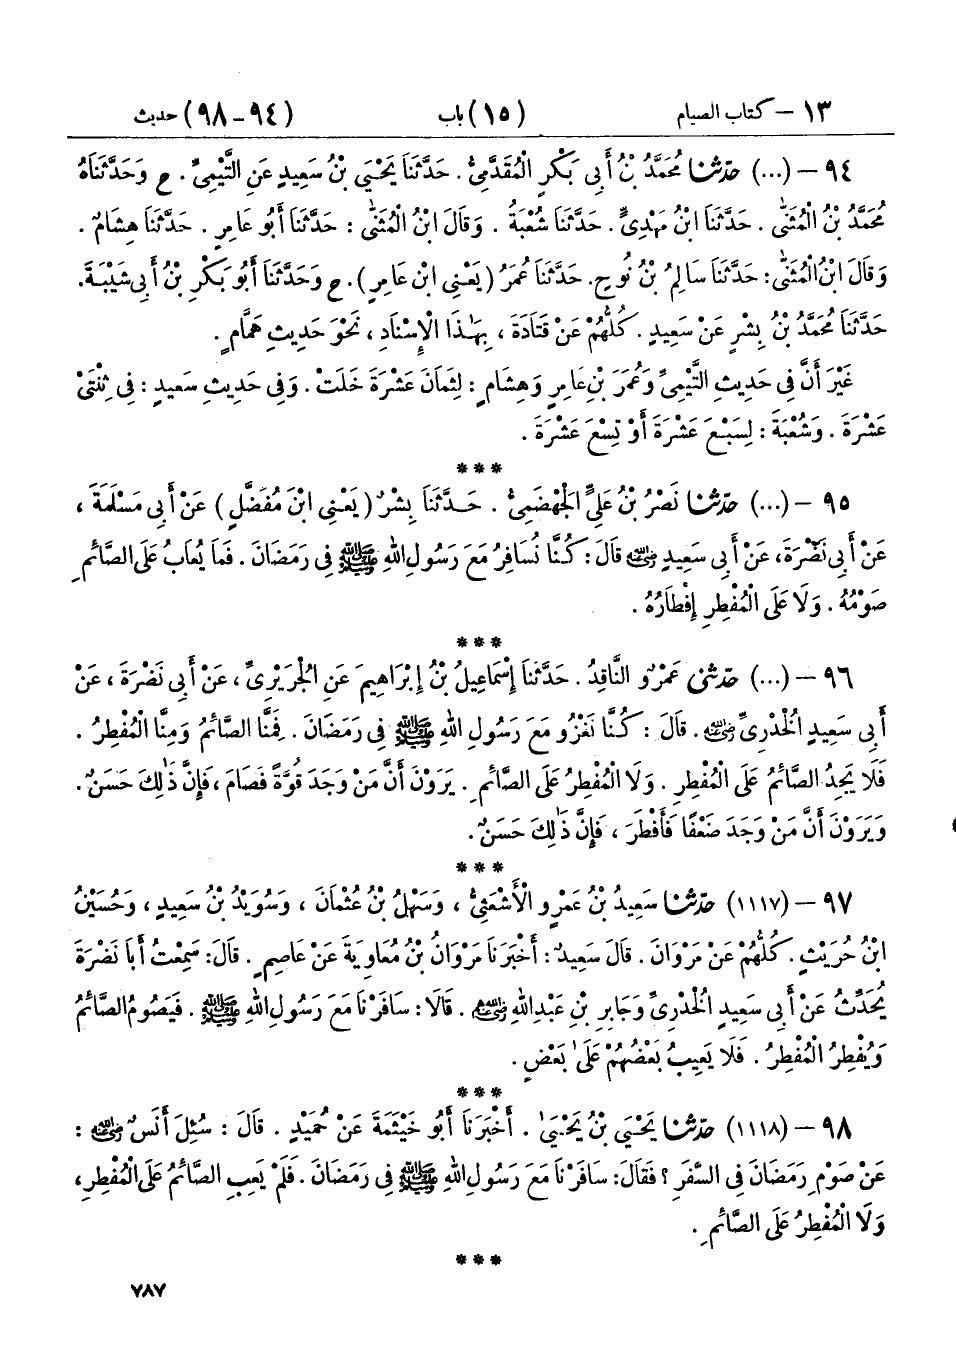 ١٣ – كتاب الصيام (١٥) باب (٩٤-٩٨) حديث
٩٤ – (...) حدّثنا مُحَمَّدُ بْنُ أَبِي بَكْرٍ الْمُقَدَّمِيُّ. حَدَّثَنَا يَحْيَىٰ بْنُ سَعِيدٍ عَنِ التَّيْمِيِّ. ح وَحَدَّثَنَاهُ
مُحَمَّدُ بْنُ الْمُثَنَّىٰ. حَدَّثَنَا ابْنُ مَهْدِيٍّ. حَدَّثَنَا شُعْبَةُ. وَقَالَ ابْنُ الْمُثَنَّىٰ: حَدَّثَنَا أَبُو عَامِرٍ. حَدَّثَنَا هِشَامٌ.
وَقَالَ ابْنُ الْمُثَنَّىٰ: حَدَّثَنَا سَالِمُ بْنُ نُوحٍ. حَدَّثَنَا عُمَرُ (يَعْنِي ابْنَ عَامِرٍ). ح وَحَدَّثَنَا أَبُو بَكْرِ بْنُ أَبِي شَيْبَةَ.
حَدَّثَنَا مُحَمَّدُ بْنُ بِشْرٍ عَنْ سَعِيدٍ. كُلُّهُمْ عَنْ قَتَادَةَ، بِهَـٰذَا الْإِسْنَادِ، نَحْوَ حَدِيثِ هَمَّامٍ.
غَيْرَ أَنَّ فِي حَدِيثِ التَّيْمِيِّ وَعُمَرَ بْنِ عَامِرٍ وَهِشَامٍ: لِثَمَانَ عَشْرَةَ خَلَتْ. وَفِي حَدِيثِ سَعِيدٍ: فِي ثِنْتَيْ
عَشْرَةَ. وَشُعْبَةَ: لِسَبْعَ عَشْرَةَ أَوْ تِسْعَ عَشْرَةَ.
***
٩٥ – (...) حدّثنا نَصْرُ بْنُ عَلِيٍّ الْجَهْضَمِيُّ. حَدَّثَنَا بِشْرٌ (يَعْنِي ابْنَ مُفَضَّلٍ) عَنْ أَبِي مَسْلَمَةَ،
عَنْ أَبِي نَضْرَةَ، عَنْ أَبِي سَعِيدٍ رضي الله عنه قَالَ: كُنَّا نُسَافِرُ مَعَ رَسُولِ اللهِ ﷺ فِي رَمَضَانَ. فَمَا يُعَابُ عَلَى الصَّائِمِ
صَوْمُهُ. وَلَا عَلَى الْمُفْطِرِ إِفْطَارُهُ.
***
٩٦ – (...) حدّثني عَمْرٌو النَّاقِدُ. حَدَّثَنَا إِسْمَاعِيلُ بْنُ إِبْرَاهِيمَ عَنِ الْجُرَيْرِيِّ، عَنْ أَبِي نَضْرَةَ، عَنْ
أَبِي سَعِيدٍ الْخُدْرِيِّ رضي الله عنه. قَالَ: كُنَّا نَغْزُو مَعَ رَسُولِ اللهِ ﷺ فِي رَمَضَانَ. فَمِنَّا الصَّائِمُ وَمِنَّا الْمُفْطِرُ.
فَلَا يَجِدُ الصَّائِمُ عَلَى الْمُفْطِرِ. وَلَا الْمُفْطِرُ عَلَى الصَّائِمِ. يَرَوْنَ أَنَّ مَنْ وَجَدَ قُوَّةً فَصَامَ، فَإِنَّ ذَٰلِكَ حَسَنٌ.
وَيَرَوْنَ أَنَّ مَنْ وَجَدَ ضَعْفًا فَأَفْطَرَ، فَإِنَّ ذَٰلِكَ حَسَنٌ.
***
٩٧ – (١١١٧) حدّثنا سَعِيدُ بْنُ عَمْرٍو الْأَشْعَثِيُّ، وَسَهْلُ بْنُ عُثْمَانَ، وَسُوَيْدُ بْنُ سَعِيدٍ، وَحُسَيْنُ
ابْنُ حُرَيْثٍ. كُلُّهُمْ عَنْ مَرْوَانَ. قَالَ سَعِيدٌ: أَخْبَرَنَا مَرْوَانُ بْنُ مُعَاوِيَةَ عَنْ عَاصِمٍ. قَالَ: سَمِعْتُ أَبَا نَضْرَةَ
يُحَدِّثُ عَنْ أَبِي سَعِيدٍ الْخُدْرِيِّ وَجَابِرِ بْنِ عَبْدِ اللهِ رضي الله عنهم. قَالَا: سَافَرْنَا مَعَ رَسُولِ اللهِ ﷺ. فَيَصُومُ الصَّائِمُ
وَيُفْطِرُ الْمُفْطِرُ. فَلَا يَعِيبُ بَعْضُهُمْ عَلَىٰ بَعْضٍ.
***
٩٨ – (١١١٨) حدّثنا يَحْيَىٰ بْنُ يَحْيَىٰ. أَخْبَرَنَا أَبُو خَيْثَمَةَ عَنْ حُمَيْدٍ. قَالَ: سُئِلَ أَنَسٌ رضي الله عنه:
عَنْ صَوْمِ رَمَضَانَ فِي السَّفَرِ؟ فَقَالَ: سَافَرْنَا مَعَ رَسُولِ اللهِ ﷺ فِي رَمَضَانَ. فَلَمْ يَعِبِ الصَّائِمُ عَلَى الْمُفْطِرِ،
وَلَا الْمُفْطِرُ عَلَى الصَّائِمِ.
***
٧٨٧